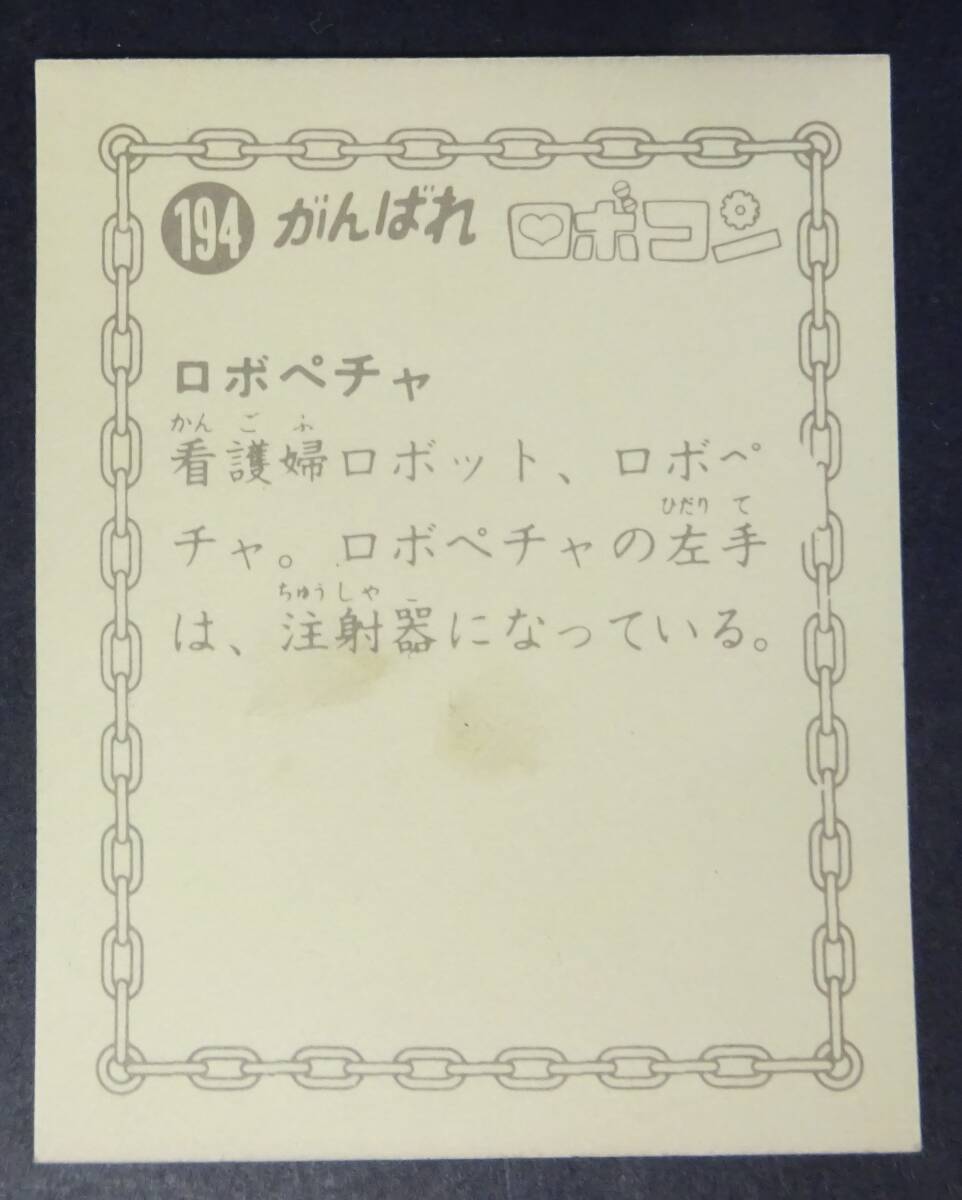 194 がんばれ ロボコン
ロボペチャ
かんごふ
看護婦ロボット、ロボペ
ひだりて
チャ。ロボペチャの左手
ちゅうしゃ
は、注射器になっている。